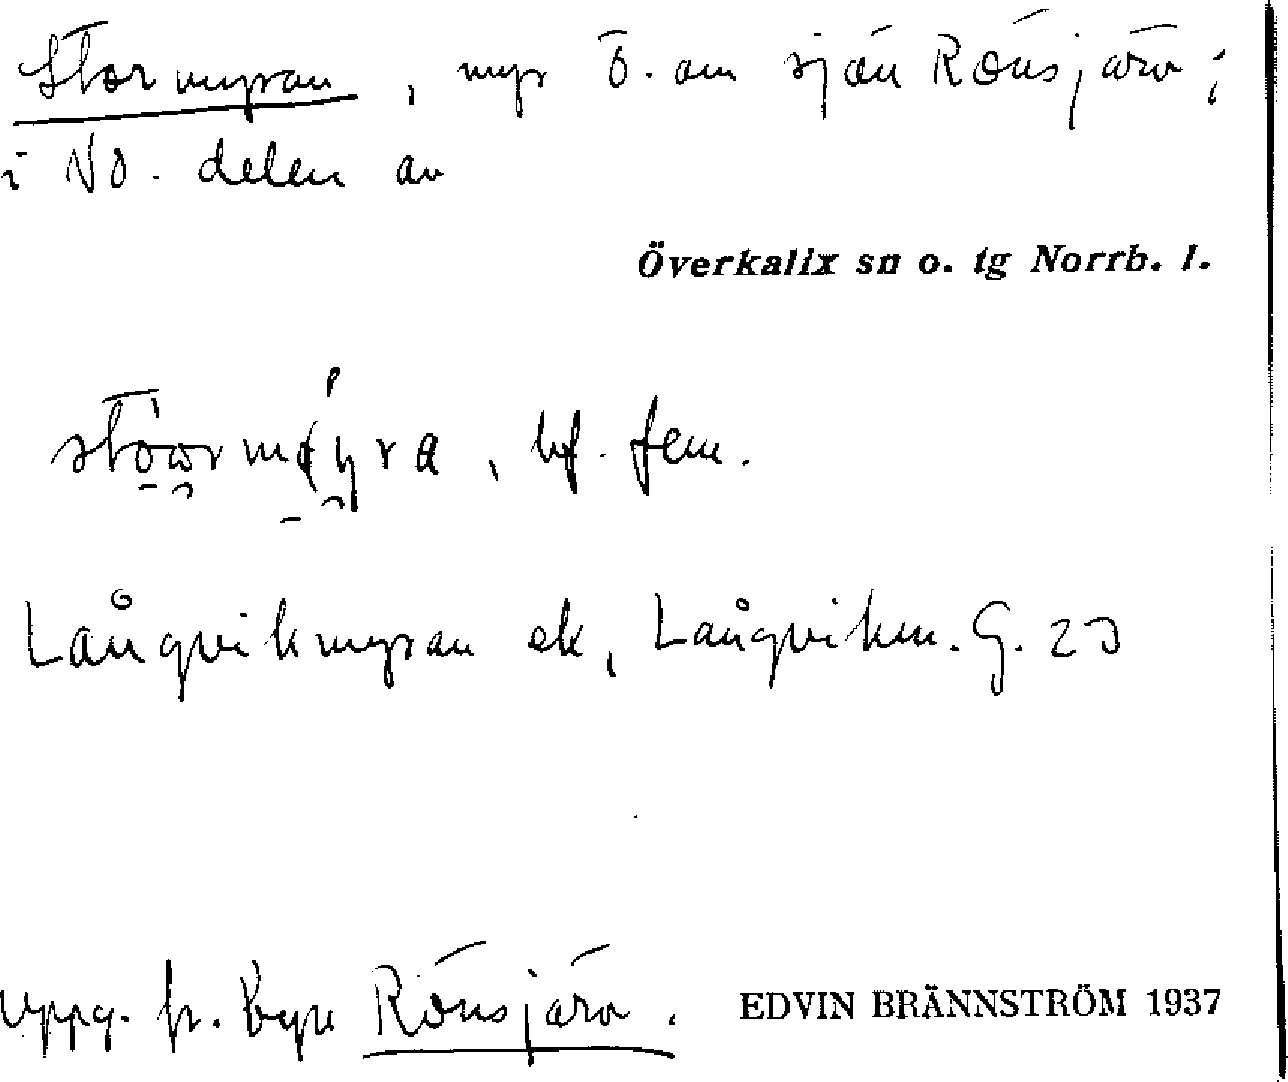 Stormyran, myr Ö. om sjön Rönsjärv;
i NO. delen av
Överkalix sn o. tg Norrb. l.
bf. fem.
Långvikmyran ek, Långviken. G. 23
Uppg. fr. byn Rönsjärv.
EDVIN BRÄNNSTRÖM 1937